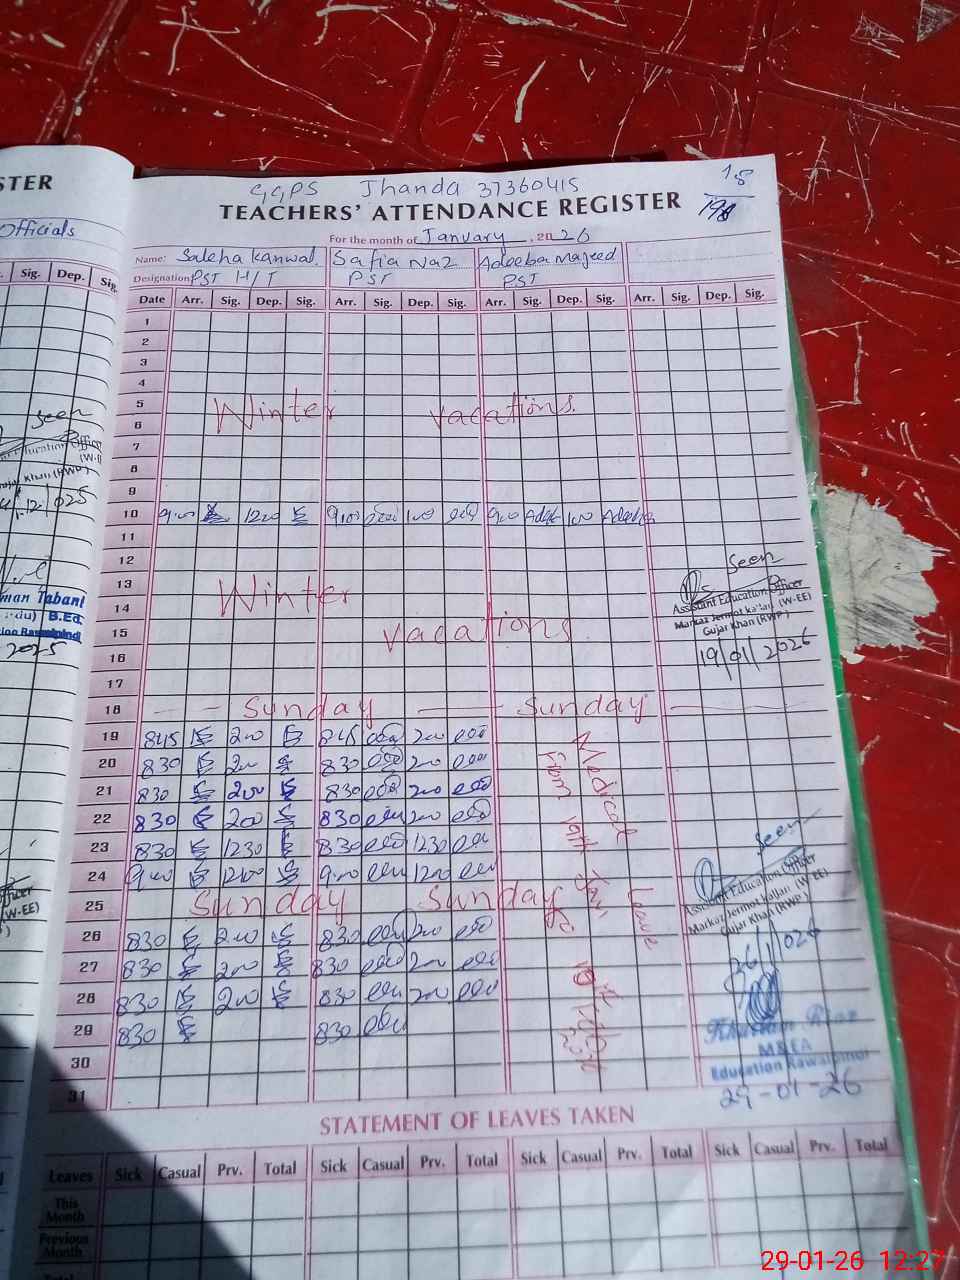 STER
Officials
Sig. Dep. Sig.
Seen
(W-E
Khan (RWP)
man Tabani
B.Ed.
2025
GGPS Jhanda 37360415
TEACHERS' ATTENDANCE REGISTER
For the month of January, 2026
Name: Saleha Kanwal Safia Naz Adeeba Majeed
Designation PST H/T PST PST
Date Arr. Sig. Dep. Sig. Arr. Sig. Dep. Sig. Arr. Sig. Dep. Sig. Arr. Sig. Dep. Sig.
1
2
3
4
5 Winter vacations.
6
7
8
9
10 900 1200 900 100 900 100
11
12
13 Winter
14
15 vacations
16
17
18 Sunday Sunday
19 845 200 845 200
20 830 200 830 200
21 830 200 830 200
22 830 200 830 200
23 830 1230 830 1230
24 900 1200 900 1200
25 Sunday Sunday
26 830 200 830 200
27 830 200 830 200
28 830 200 830 200
29 830 830
30
31
Medical Leave
From 19th Jan
Seen
Assistant Education Officer
Markaz Jermot kallan (W-EE)
Gujar Khan (RWP)
19/01/2026
Seen
Assistant Education Officer
Markaz Jermot kallan (W-EE)
Gujar Khan (RWP)
M&EA
Education Rawalpindi
29-01-26
STATEMENT OF LEAVES TAKEN
Leaves Sick Casual Prv. Total Sick Casual Prv. Total Sick Casual Prv. Total Sick Casual Prv. Total
This
Month
Previous
Month
Total
29-01-26 12:27